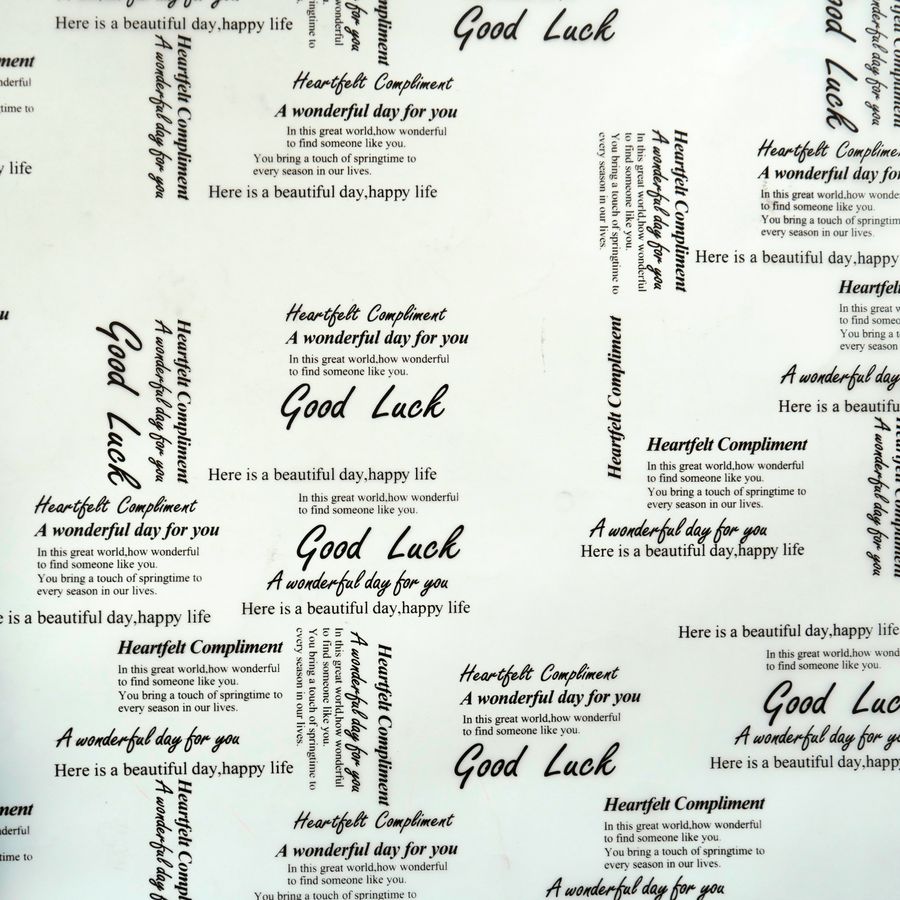 Here is a beautiful day,happy life
Heartfelt Compliment
A wonderful day for you
springtime to
wonderful
for you
Compliment
Good Luck
Good Luck
Heartfelt Compliment
A wonderful day for you
Heartfelt Compliment
A wonderful day for you
In this great world,how wonderful
to find someone like you.
You bring a touch of springtime to
every season in our lives.
Here is a beautiful day,happy life
time to
happy life
Heartfelt Compliment
A wonderful day for you
In this great world,how wonderful
to find someone like you.
You bring a touch of springtime to
every season in our lives.
Heartfelt Compliment
A wonderful day for
In this great world,how
to find someone like you.
You bring a touch of
every season in our lives.
Here is a beautiful day,happy
Heartfelt
In this great
to find
You bring a
every season
A wonderful day
Here is a beautiful
Heartfelt Compliment
A wonderful day for you
Good Luck
Heartfelt Compliment
A wonderful day for you
In this great world,how wonderful
to find someone like you.
Good Luck
Here is a beautiful day,happy life
Heartfelt Compliment
Heartfelt Compliment
In this great world,how wonderful
to find someone like you.
You bring a touch of springtime to
every season in our lives.
A wonderful day for you
Here is a beautiful day,happy life
A wonderful day for you
Heartfelt Compliment
A wonderful day for you
In this great world,how wonderful
to find someone like you.
You bring a touch of springtime to
every season in our lives.
is a beautiful day,happy life
In this great world,how wonderful
to find someone like you.
Good Luck
A wonderful day for you
Here is a beautiful day,happy life
Heartfelt Compliment
In this great world,how wonderful
to find someone like you.
You bring a touch of springtime to
every season in our lives.
A wonderful day for you
Here is a beautiful day,happy life
Heartfelt Compliment
A wonderful day for you
In this great world,how wonderful
to find someone like you.
You bring a touch of springtime to
every season in our lives.
Heartfelt Compliment
A wonderful day for you
In this great world,how wonderful
to find someone like you.
Good Luck
Here is a beautiful day,happy life
In this great world,how
to find someone like you.
Good
A wonderful day for
Here is a beautiful day,happy
Heartfelt
A wonderful day for
Heartfelt Compliment
A wonderful day for you
In this great world,how wonderful
to find someone like you.
You bring a touch of springtime to
Heartfelt Compliment
In this great world,how wonderful
to find someone like you.
You bring a touch of springtime to
every season in our lives.
A wonderful day for you